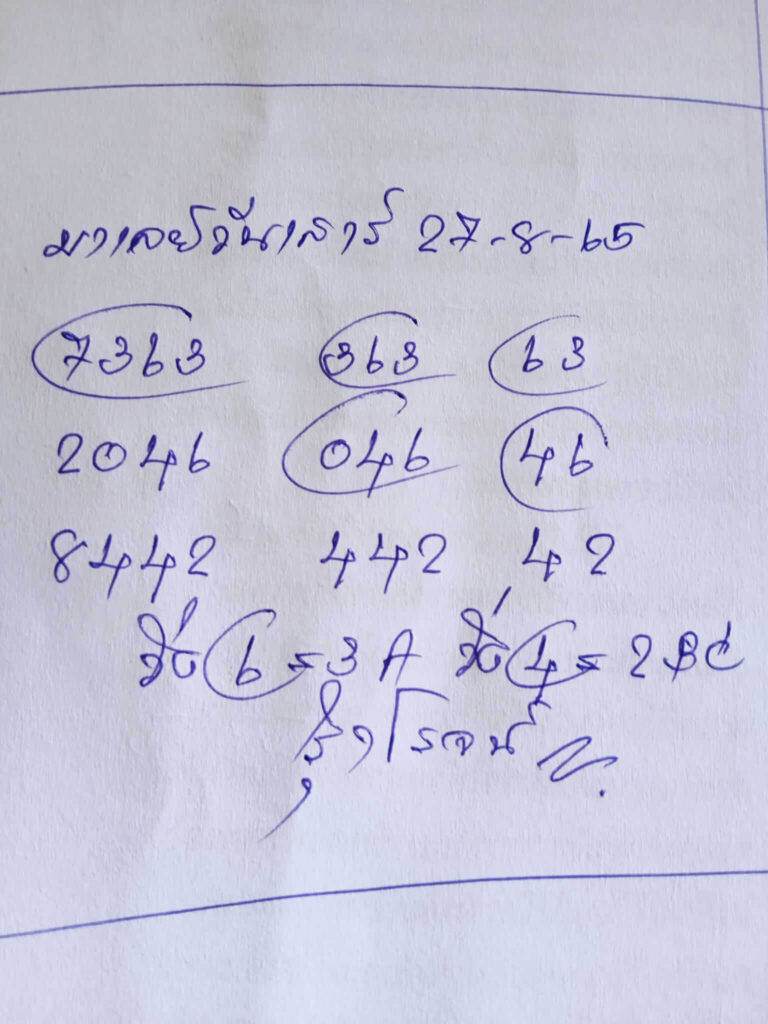 มาเลย์วันเสาร์ 27-8-65
7363 363 63
2046 046 46
8442 442 42
6 = 3 A 4 = 2 BC
รุ่งโรจน์